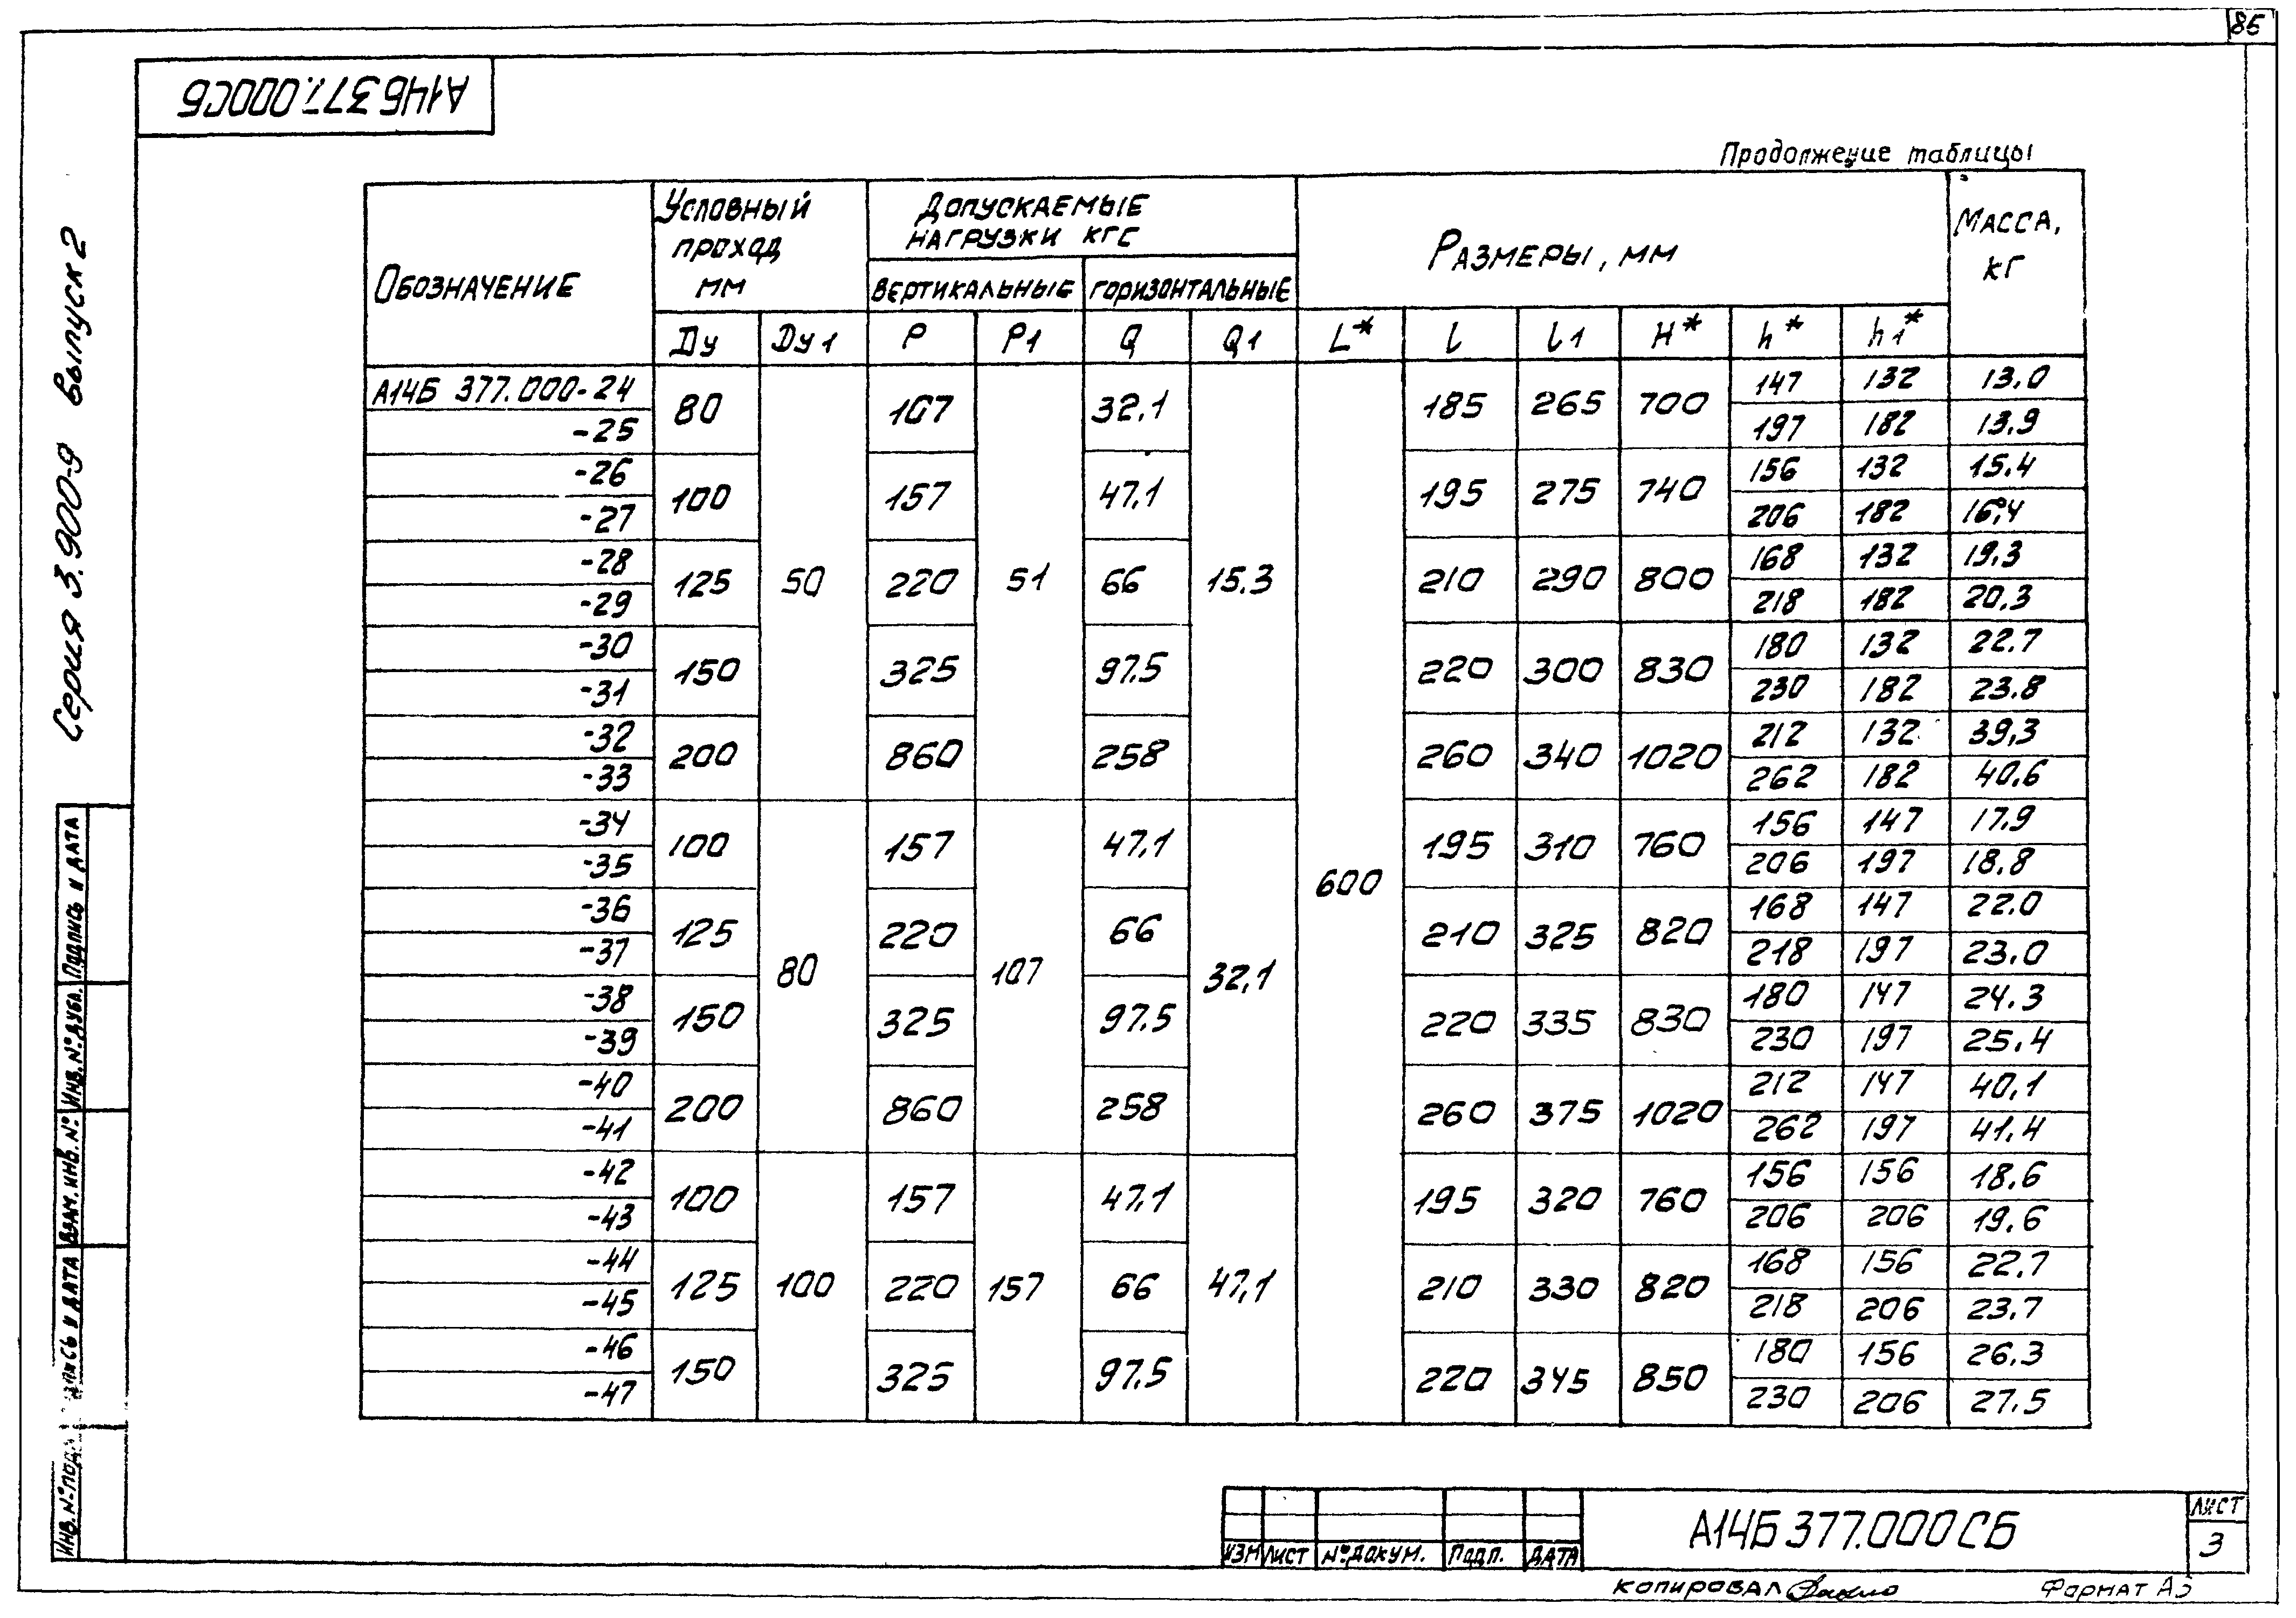 85
А14Б 377.000СБ
Серия 3.900-9 Выпуск 2
Продолжение таблицы
Обозначение Условный проход мм Допускаемые нагрузки кгс Размеры, мм Масса, кг
вертикальные горизонтальные
Ду Ду1 Р Р1 Q Q1 L* l l1 H* h* h1*
А14Б 377.000-24 80 50 107 51 32.1 15.3 600 185 265 700 147 132 13.0
-25 197 182 13.9
-26 100 157 47.1 195 275 740 156 132 15.4
-27 206 182 16,4
-28 125 220 66 210 290 800 168 132 19.3
-29 218 182 20.3
-30 150 325 97.5 220 300 830 180 132 22.7
-31 230 182 23.8
-32 200 860 258 260 340 1020 212 132 39,3
-33 262 182 40.6
-34 100 80 157 107 47.1 32,1 195 310 760 156 147 17.9
-35 206 197 18.8
-36 125 220 66 210 325 820 168 147 22.0
-37 218 197 23.0
-38 150 325 97.5 220 335 830 180 147 24.3
-39 230 197 25.4
-40 200 860 258 260 375 1020 212 147 40,1
-41 262 197 41.4
-42 100 100 157 157 47.1 47,1 195 320 760 156 156 18.6
-43 206 206 19.6
-44 125 220 66 210 330 820 168 156 22.7
-45 218 206 23.7
-46 150 325 97.5 220 345 850 180 156 26.3
-47 230 206 27.5
Подпись и дата
Инв. № дубл.
Взам. инв. №
Подпись и дата
Инв. № подл.
Изм Лист № докум. Подп. Дата
А14Б 377.000СБ
Лист
3
Копировал
Формат А3